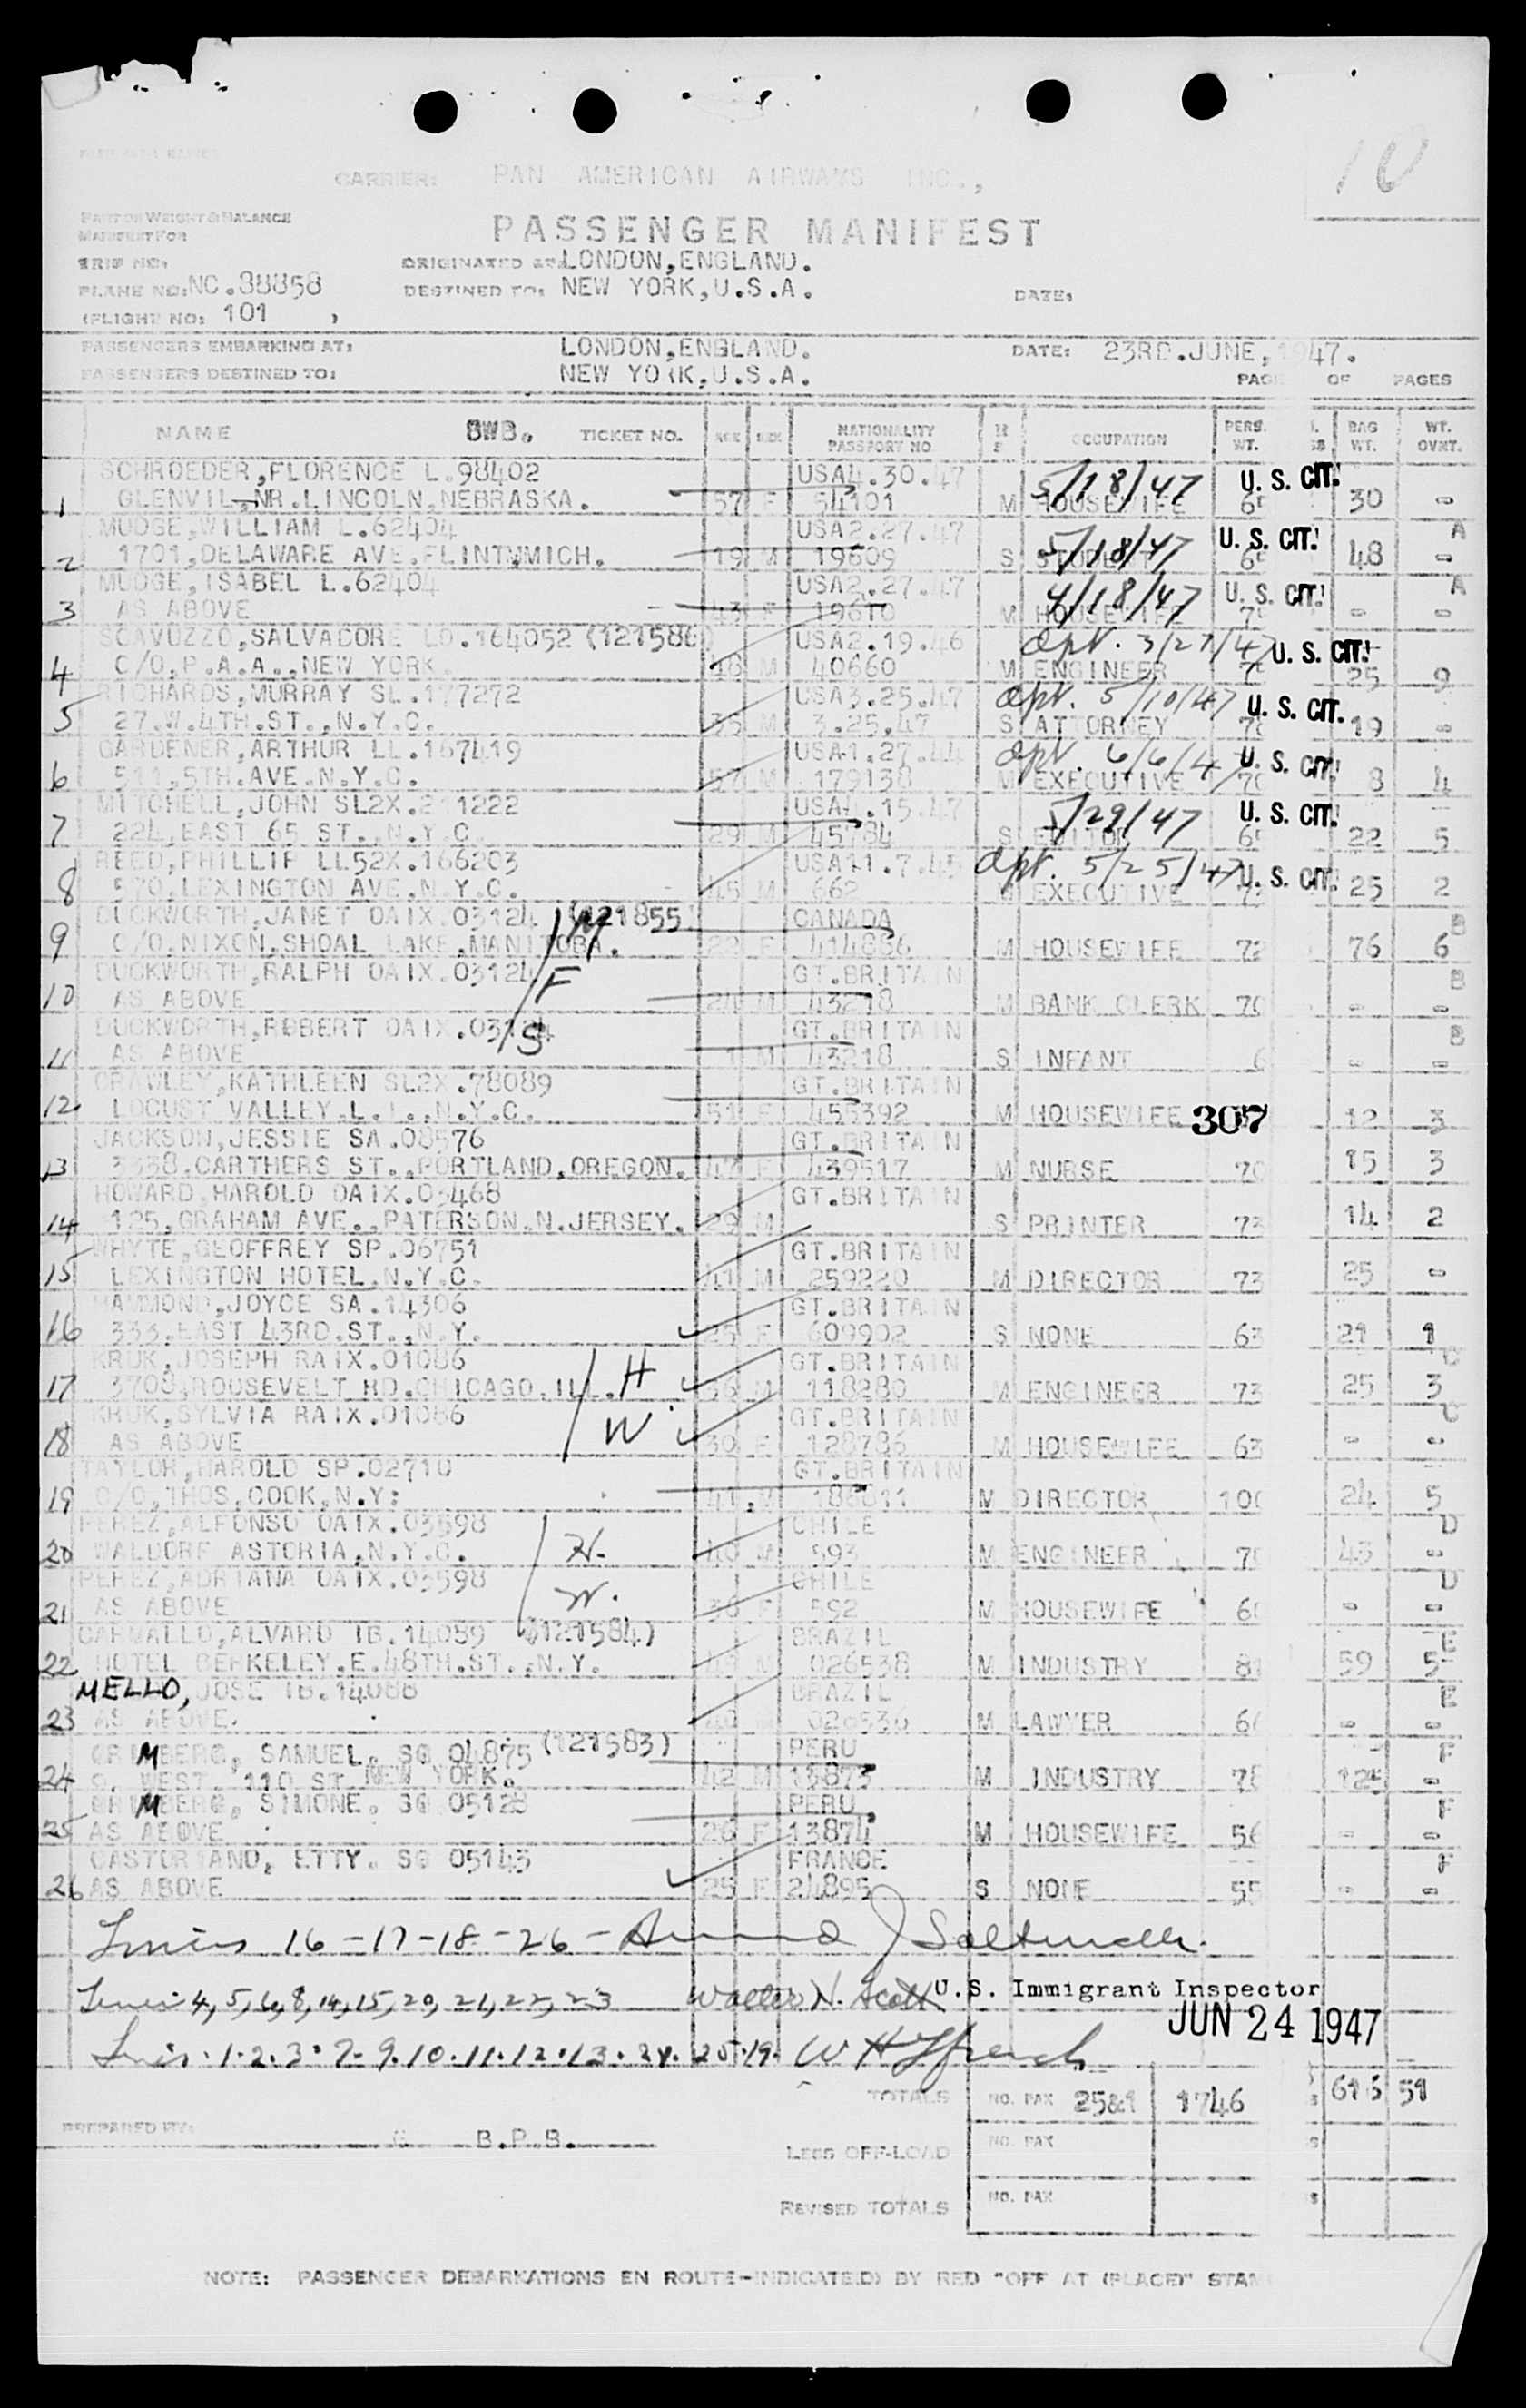 10
CARRIER: PAN AMERICAN AIRWAYS INC.,
PART OF WEIGHT & BALANCE
MANIFEST FOR
PASSENGER MANIFEST
TRIP NO: ORIGINATED AT: LONDON, ENGLAND.
PLANE NO: NC.88858 DESTINED TO: NEW YORK, U.S.A. DATE:
(FLIGHT NO: 101 )
PASSENGERS EMBARKING AT: LONDON, ENGLAND. DATE: 23RD.JUNE, 1947.
PASSENGERS DESTINED TO: NEW YORK, U.S.A.
PAGE OF PAGES
NAME SWB. TICKET NO. AGE SEX NATIONALITY PASSPORT NO OCCUPATION PERS. WT. BAG WT. WT. OVHT.
SCHROEDER, FLORENCE L.98402 USA4.30.47 5/18/47 U. S. CIT.
1 GLENVIL, NR.LINCOLN, NEBRASKA. 57 F 54101 M HOUSEWIFE 30 -
MUDGE, WILLIAM L.62404 USA2.27.47 5/18/47 U. S. CIT. A
2 1701, DELAWARE AVE. FLINT, MICH. 19 M 19609 S STUDENT 48 -
MUDGE, ISABEL L.62404 USA2.27.47 4/18/47 U. S. CIT. A
3 AS ABOVE 43 F 19610 M HOUSEWIFE - -
SCAVUZZO, SALVADORE LO.164052 (121586) USA2.19.46 Opt. 3/27/47 U. S. CIT.
4 C/O. P.A.A., NEW YORK. 48 M 40660 M ENGINEER 25 9
RICHARDS, MURRAY SL.177272 USA3.25.47 Opt. 5/10/47 U. S. CIT.
5 27.W.4TH.ST., N.Y.C. 35 M 3.25.47 S ATTORNEY 19 -
GARDENER, ARTHUR LL.167419 USA1.27.44 Opt. 6/6/47 U. S. CIT.
6 511, 5TH.AVE.N.Y.C. 57 M 179138 M EXECUTIVE 8 4
MITCHELL, JOHN SL2X.211222 USA4.15.47 5/29/47 U. S. CIT.
7 224, EAST 65 ST., N.Y.C. 29 M 45784 S EDITOR 22 5
REED, PHILLIP LL52X.166203 USA11.7.45 Opt. 5/25/47 U. S. CIT.
8 570, LEXINGTON AVE.N.Y.C. 45 M 662 M EXECUTIVE 25 2
DUCKWORTH, JANET OAIX.03124 (121855) M CANADA B
9 C/O. NIXON, SHOAL LAKE, MANITOBA. 22 F 414886 M HOUSEWIFE 72 76 6
DUCKWORTH, RALPH OAIX.03124 F GT.BRITAIN B
10 AS ABOVE 24 M 43218 M BANK CLERK 70 - -
DUCKWORTH, ROBERT OAIX.03124 S GT.BRITAIN B
11 AS ABOVE 1 M 43218 S INFANT 6 - -
CRAWLEY, KATHLEEN SL2X.78089 GT.BRITAIN
12 LOCUST VALLEY, L.I., N.Y.C. 51 F 455392 M HOUSEWIFE 307 12 3
JACKSON, JESSIE SA.08576 GT.BRITAIN
13 3338, CARTHERS ST., PORTLAND, OREGON. 47 F 439517 M NURSE 70 15 3
HOWARD, HAROLD OAIX.03468 GT.BRITAIN
14 125, GRAHAM AVE., PATERSON.N.JERSEY. 29 M S PRINTER 73 14 2
WHYTE, GEOFFREY SP.06751 GT.BRITAIN
15 LEXINGTON HOTEL, N.Y.C. 41 M 259220 M DIRECTOR 73 25 -
HAMMOND, JOYCE SA.14306 GT.BRITAIN
16 333. EAST 43RD.ST., N.Y. 25 F 609902 S NONE 63 21 1
KRUK, JOSEPH RAIX.01086 H GT.BRITAIN C
17 3708, ROUSEVELT RD.CHICAGO.ILL. 36 M 118280 M ENGINEER 73 25 3
KRUK, SYLVIA RAIX.01086 W GT.BRITAIN C
18 AS ABOVE 30 F 128786 M HOUSEWIFE 63 - -
TAYLOR, HAROLD SP.02710 GT.BRITAIN
19 C/O, THOS, COOK, N.Y: 41 M 188811 M DIRECTOR 100 24 5
PEREZ, ALFONSO OAIX.03598 H. CHILE D
20 WALDORF ASTORIA, N.Y.C. 40 M 593 M ENGINEER 43 -
PEREZ, ADRIANA OAIX.03598 W. CHILE D
21 AS ABOVE 38 F 592 M HOUSEWIFE - -
CARVALLO, ALVARO IB.14089 (121584) BRAZIL E
22 HOTEL BERKELEY.E.48TH.ST., N.Y. 43 M 026538 M INDUSTRY 59 5
MELLO, JOSE IB.14088 BRAZIL E
23 AS ABOVE. 40 M LAWYER - -
GRIMBERG, SAMUEL. SG 04875 (121583) PERU F
24 S. WEST. 110 ST. NEW YORK. 42 M 13873 M INDUSTRY -
GRIMBERG, SIMONE. SG 05128 PERU F
25 AS ABOVE 26 F 13874 M HOUSEWIFE 56 - -
CASTORIAND, ETTY. SG 05143 FRANCE F
26 AS ABOVE 25 F 24895 S NONE 55 - -
Lines 16-17-18-26-
Lines 4, 5, 6, 8, 14, 15, 20, 21, 22, 23 Walter N. Scott U.S. Immigrant Inspector
JUN 24 1947
Lines. 1.2.3.7.9.10.11.12.13.24.25.19. W H French
TOTALS NO. PAX 25&1 1746 616 51
PREPARED BY: B.P.B.
LESS OFF-LOAD NO. PAX
REVISED TOTALS NO. PAX
NOTE: PASSENGER DEBARKATIONS EN ROUTE-INDICATE(D) BY RED "OFF AT (PLACE)" STAM